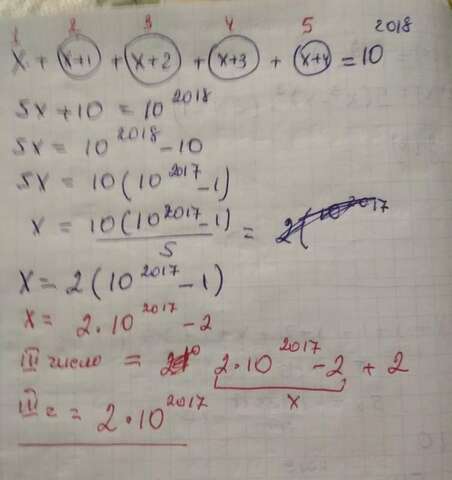 1 2 3 4 5
x + (x+1) + (x+2) + (x+3) + (x+4) = 10^2018
5x + 10 = 10^2018
5x = 10^2018 - 10
5x = 10(10^2017 - 1)
x = 10(10^2017 - 1) / 5 = 2(10^2017
x = 2(10^2017 - 1)
x = 2·10^2017 - 2
III число = 2·10^2017 - 2 + 2
x
III ч = 2·10^2017